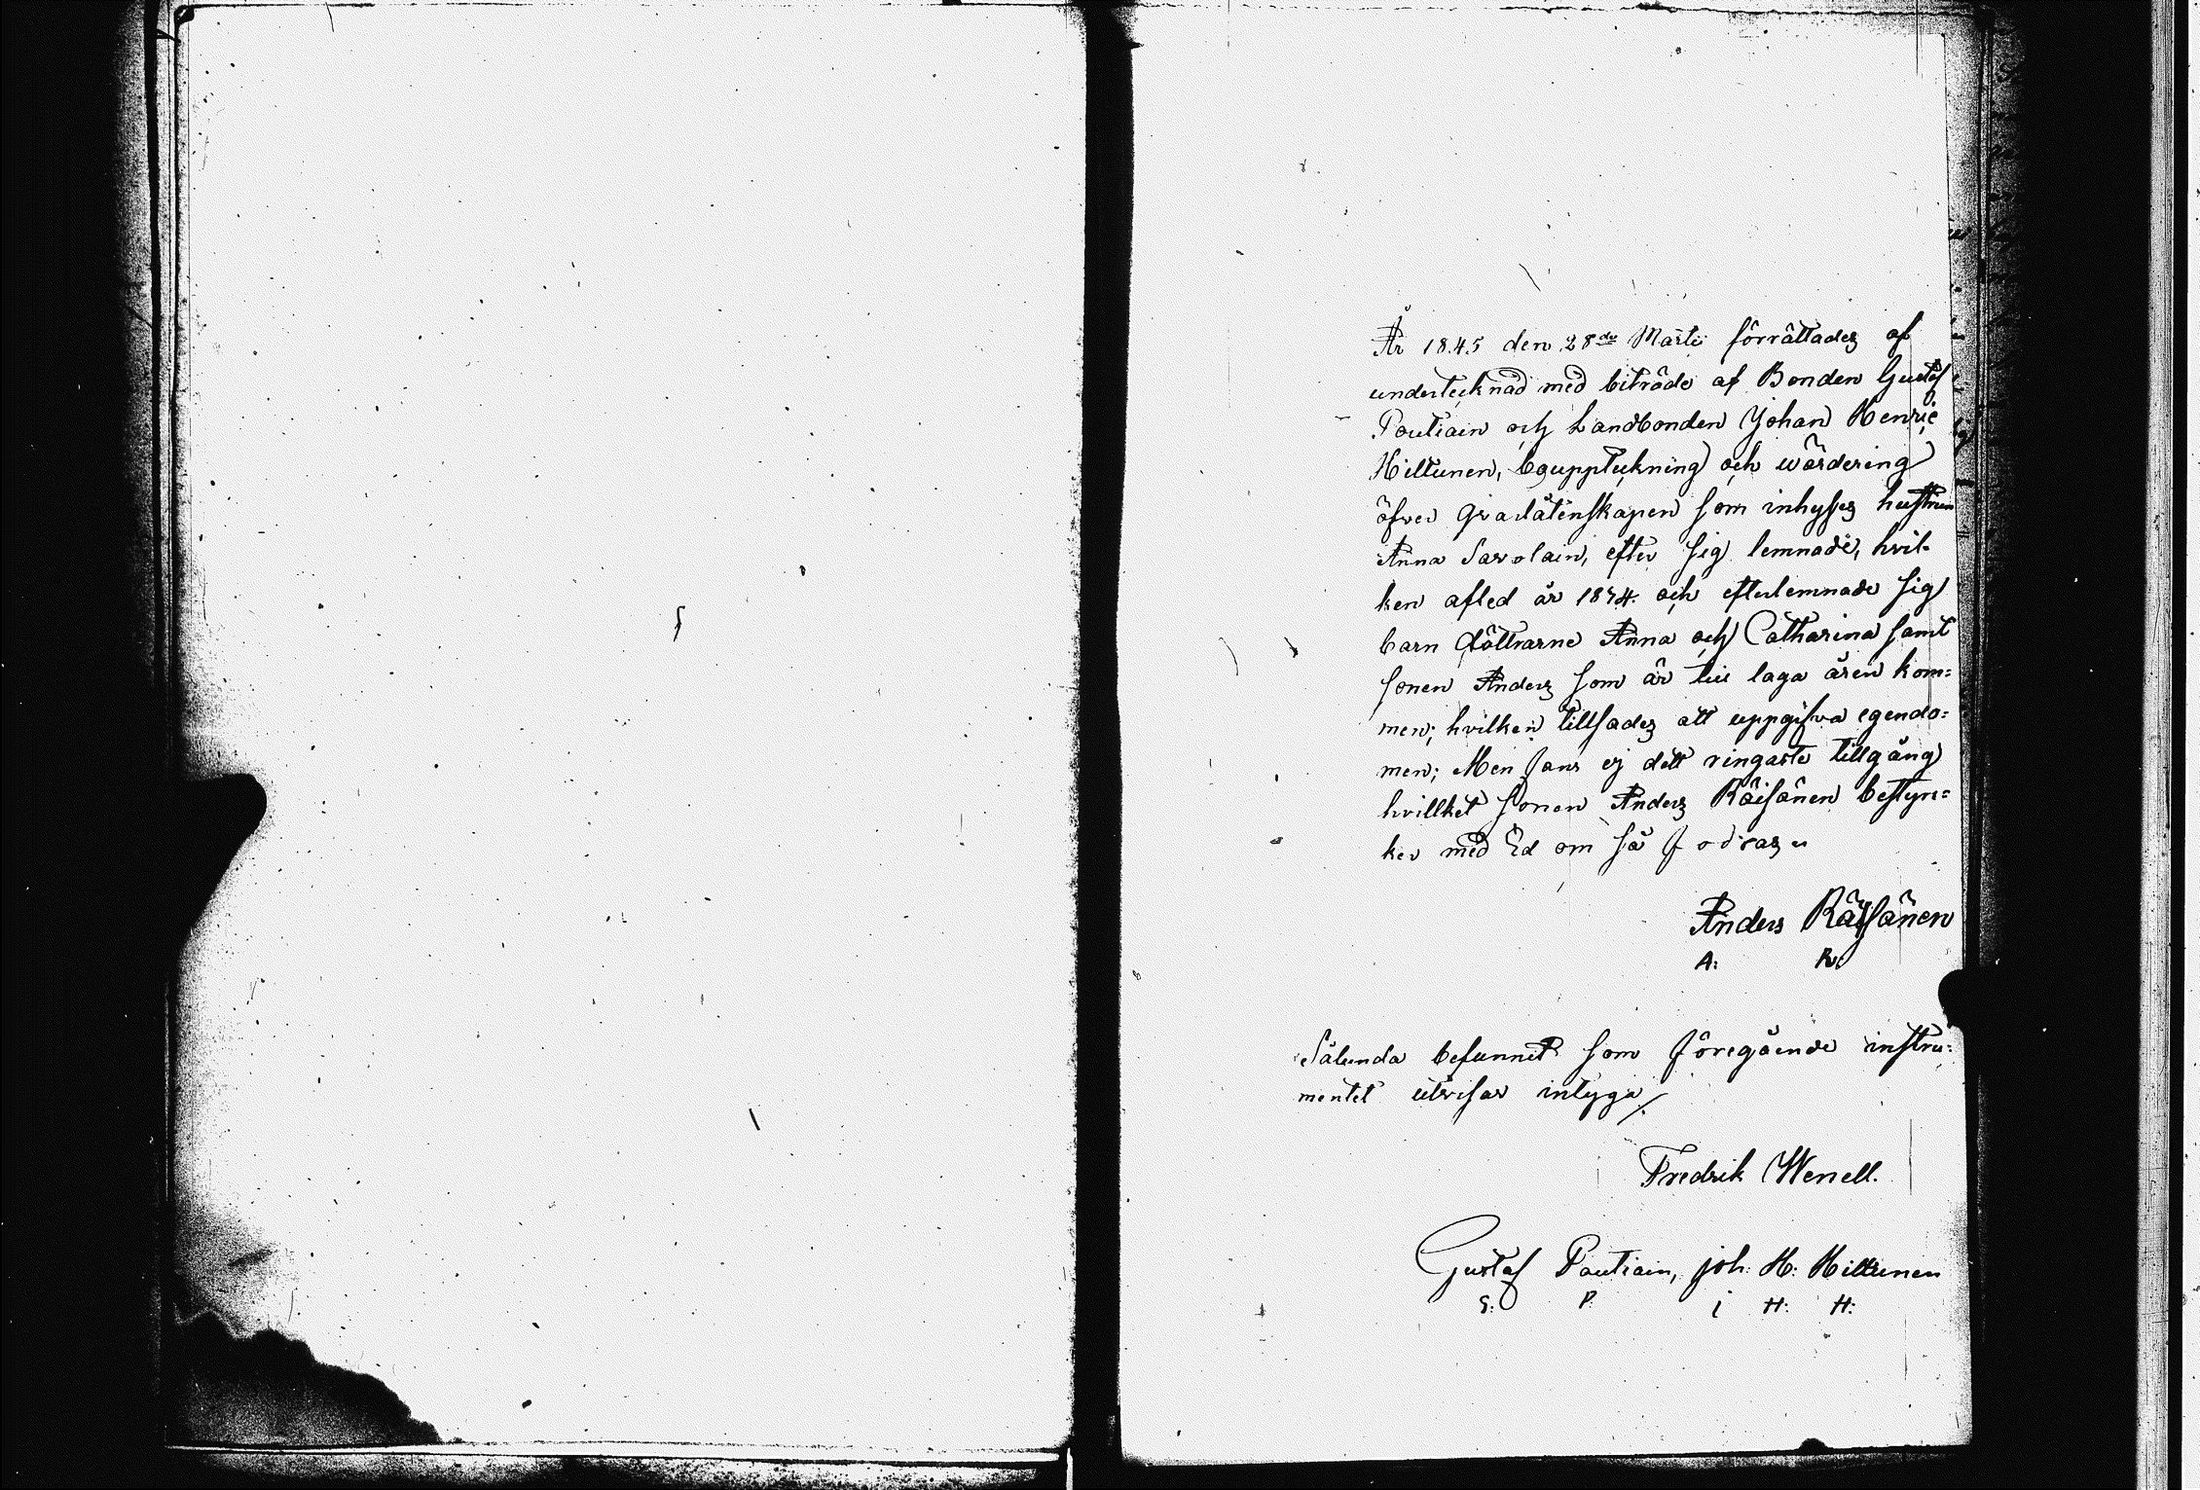 År 1845 den 28de Martii förrättades af
undertecknad med biträde af Bonden Gustaf
Poutiain och Landbonden Johan Henric
Hiltunen, bouppteckning och wärdering
öfver qvarlåtenskapen som inhyses hustrun
Anna Savolain, efter sig lemnade, hvil-
ken afled år 1844. och efterlemnade sig
barn döttrarne Anna och Catharina samt
sonen Anders som är till laga åren kom=
men; hvilken tillsades att uppgifva egendo=
men; Men fans ej dett ringaste tillgång
hvillket sonen Anders Räisänen bestyr=
ker med Ed om så fodras
Anders Räisänen
A: R:
Sålunda befunnit som föregående instru=
mentet utvisar intyga/.
Fredrik Wenell.
Gustaf Poutiain, Joh: H: Hiltunen
G: P: I H: H: